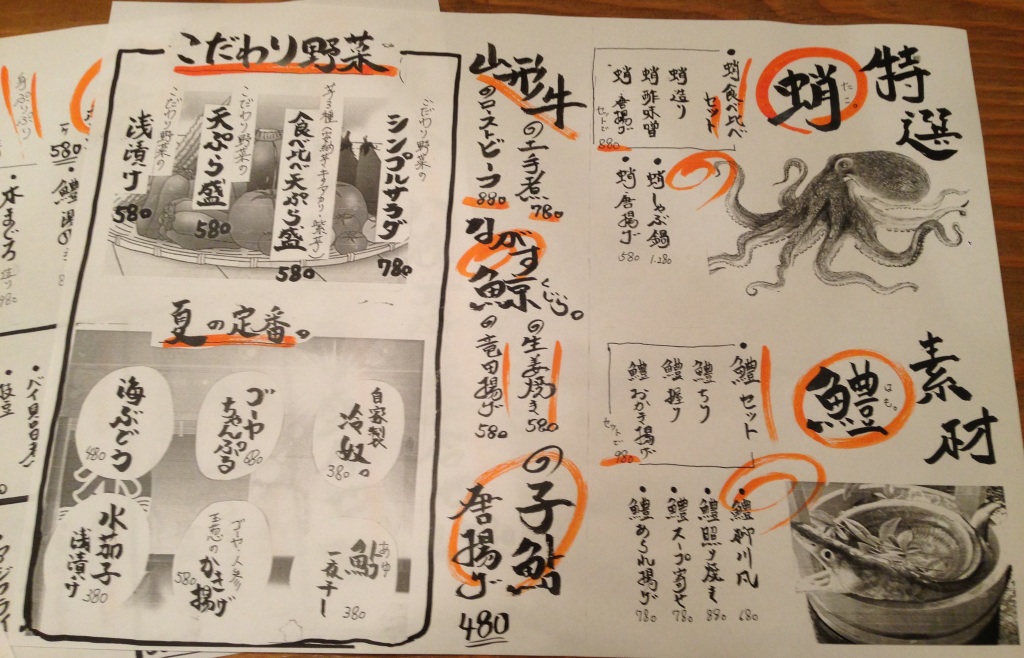 特選
素材
蛸
たこ。
・蛸食べ比べ
セット
蛸造り
蛸酢味噌
蛸唐揚げ
セットで
880
・蛸しゃぶ鍋
1.280
・蛸唐揚げ
580
鱧
はも。
・鱧セット
鱧ちり
鱧握り
鱧おかき揚げ
セットで
980
・鱧柳川風
680
・鱧照り焼き
880
・鱧スープ寄せ
780
・鱧あられ揚げ
780
山形牛
の土手煮
780
のローストビーフ
880
ながす
鯨。
くじら
の生姜焼き
580
の竜田揚げ
580
の子鮎
唐揚げ
480
こだわり野菜
こだわり野菜の
シンプルサラダ
780
食べ比べ天ぷら盛
580
こだわり野菜の
天ぷら盛
580
こだわり野菜の
浅漬け
580
夏の定番。
自家製
冷奴。
380
ゴーヤ
ちゃんぷる
680
海ぶどう
480
鮎
あゆ
一夜干し
380
玉葱のかき揚げ
580
水茄子
浅漬け
380
580
・水まぐろ